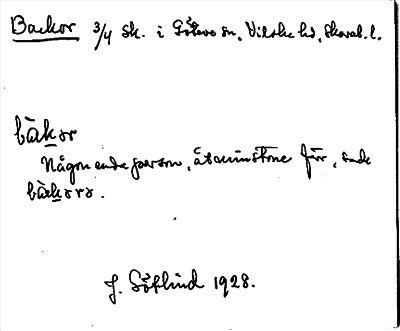 Backor 3/4 sk. i Göteve sn, Vilske hd, Skarab. l.
bäkor
Någon enda person, åtminstone förr, sade
bäkoro.
J. Götlind 1928.